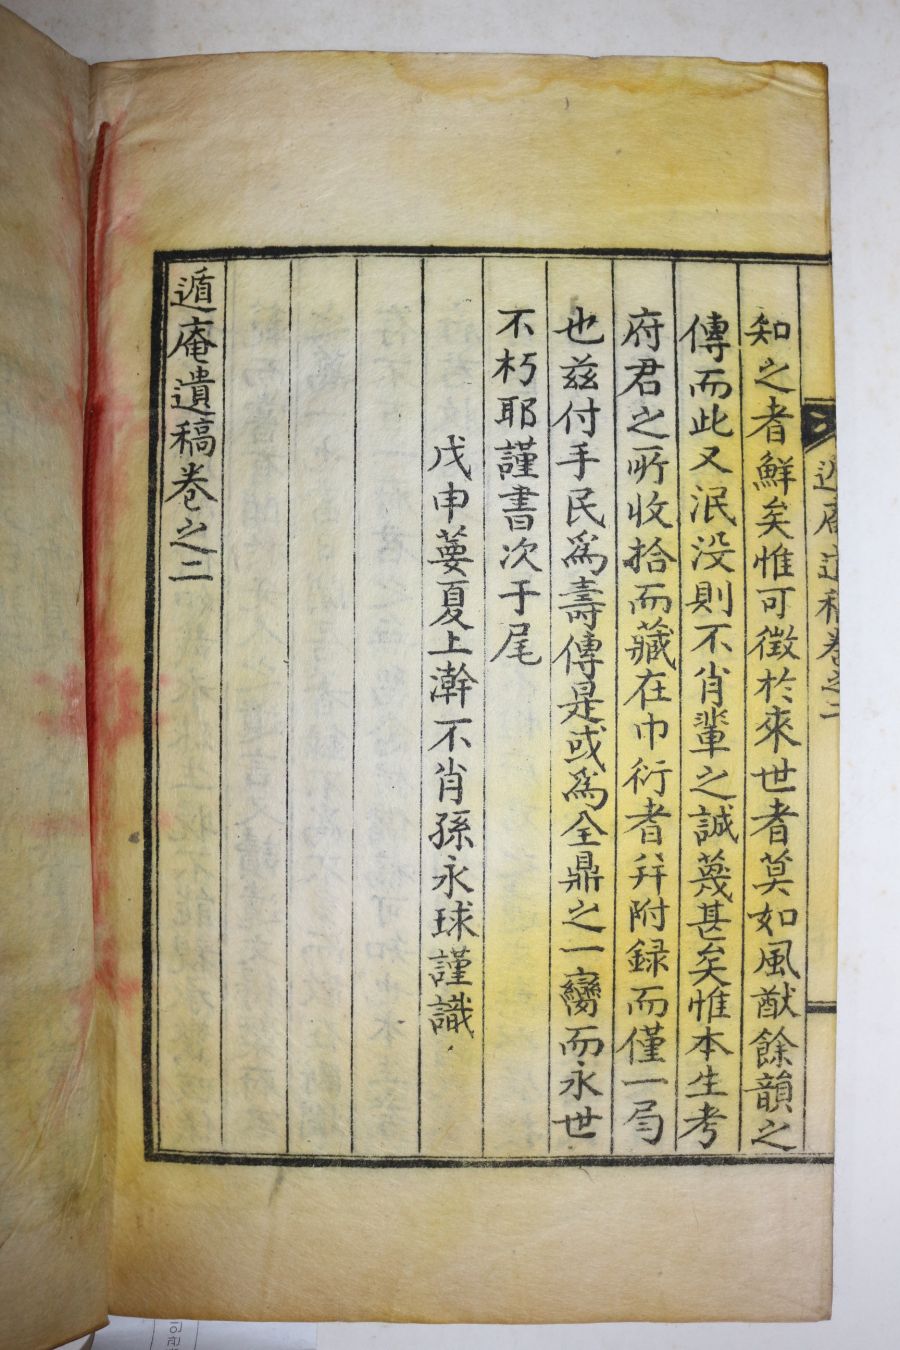 遁庵遺稿卷之二
知之者鮮矣惟可徵於來世者莫如風猷餘韻之
傳而此又泯没則不肖輩之誠蔑甚矣惟本生考
府君之所收拾而藏在巾衍者幷附録而僅一局
也兹付手民爲壽傳是或爲全鼎之一臠而永世
不朽耶謹書次于尾
戊申蔞夏上澣不肖孫永球謹識
遁庵遺稿卷之二